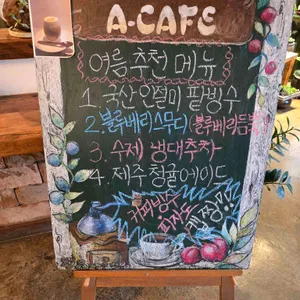 A-CAFE
여름 추천 메뉴
1. 국산 인절미 팥빙수
2. 블루베리스무디 (블루베리듬뿍)
3. 수제 냉대추차
4. 제주청귤에이드
커피빙수